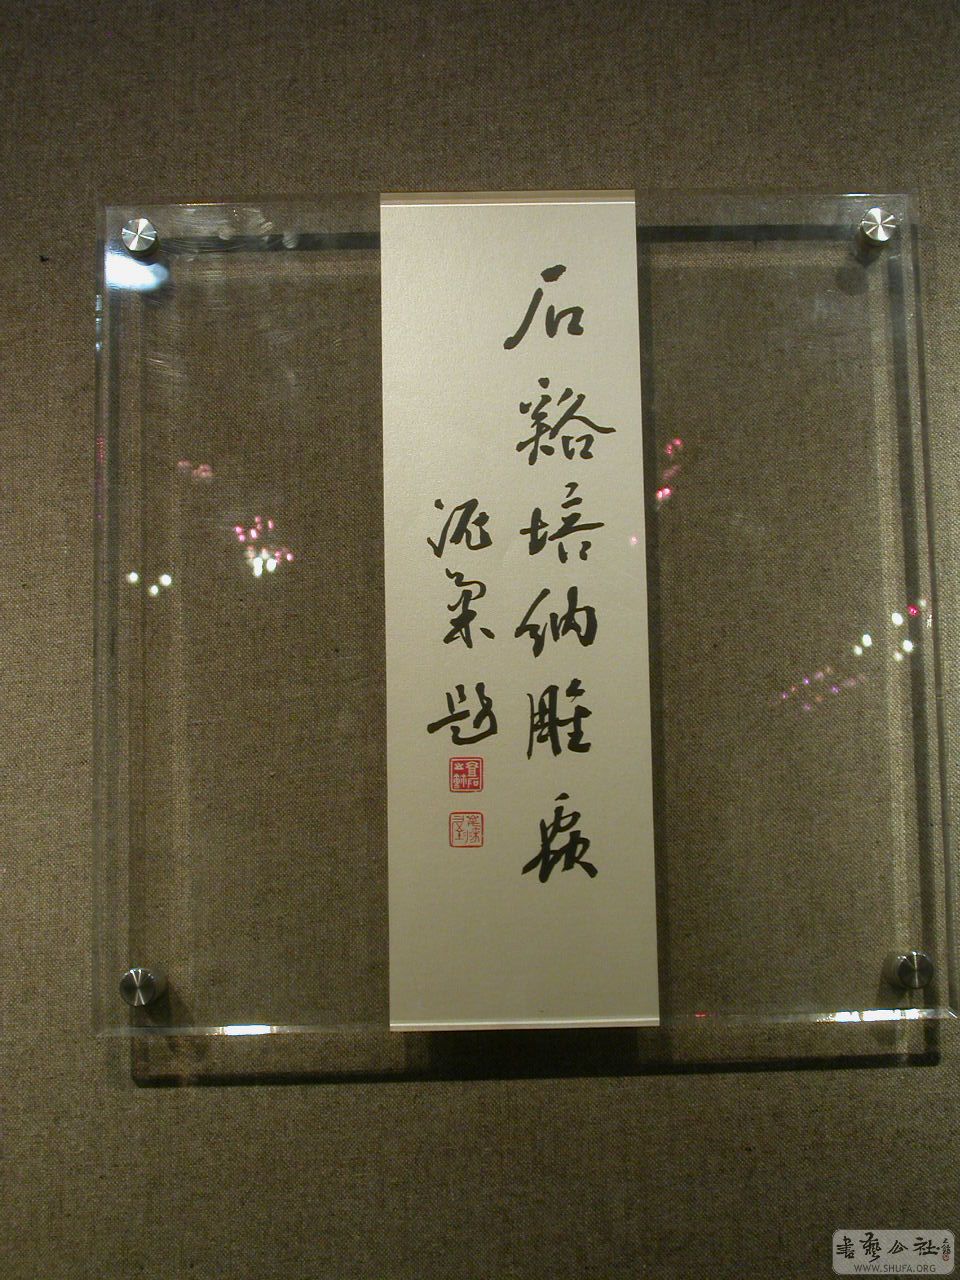 石谿培纳雕展
题
書藝公社
WWW.SHUFA.ORG